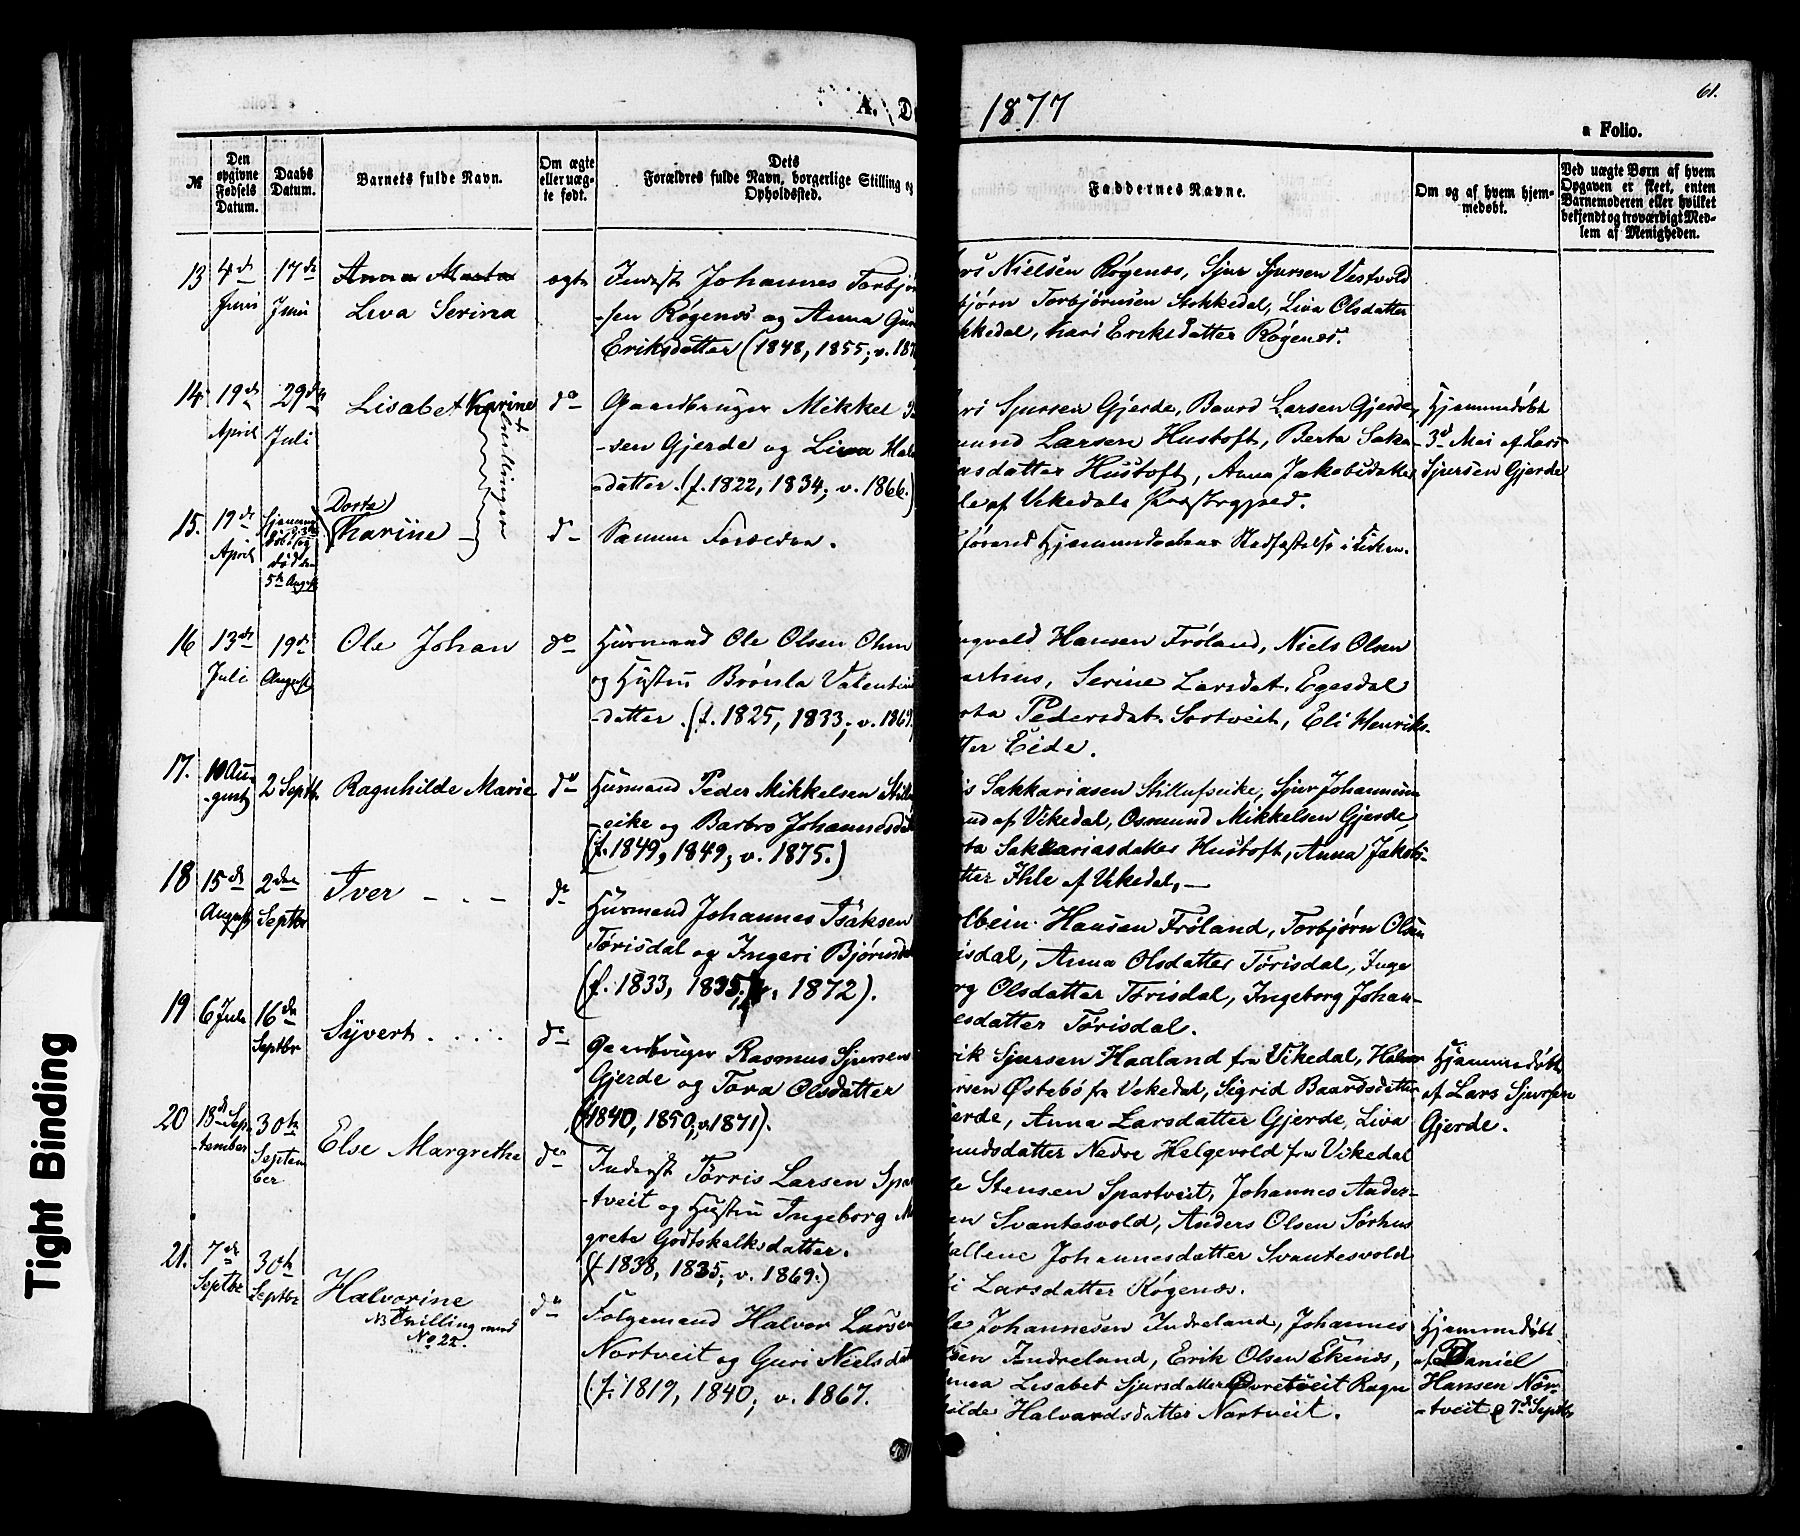 61.
A. D
1877
a Folio.
№
Den opgivne Fødsels Datum.
Daabs Datum.
Barnets fulde Navn.
Om ægte eller uægte født.
Dets Forældres fulde Navn, borgerlige Stilling og Opholdssted.
Faddernes Navne.
Om og af hvem hjemmedøbt.
Ved uægte Børn af hvem Opgaven er skeet, enten Barnemoderen eller hvilket bekjendt og troværdigt Medlem af Menigheden.
13 4de Juni 17de Juni
Anna Marta
Liva Serina
ægte
Inderst Johannes Torbjør
-sen Røgenæs og Anna Gur
Eriksdatter (1848, 1855; v. 187
Nielsen Røgenæs, Sjur Sjursen Vestvold
bjørn Torbjørnsen Stokkedal, Liva Olsdatter
kkedal, Kari Eriksdatter Røgenæs.
14 19de April 29de Juli
Lisabet Karine
Tvillinger
do
Gaardbruger Mikkel
-sen Gjerde og Liva Hal
-datter. (f. 1822, 1834; v. 1866.)
Sjursen Gjerde, Baard Larsen Gjerde,
mund Larsen Hustoft, Berta Saka-
iasdatter Hustoft, Anna Jakobsdatter
le af Vikedals Præstegjeld.
Hjemmedøbt
3de Mai af Lars
Sjursen Gjerde
15. 19de April
Hjemmedøbt og død den 5te August
Dorte
Karine
d-
Samme Forældre.
Hjemmedaabens Stadfæstelse i Kirken.
16 13de Juli 19de August
Ole Johan
do
Huusmand Ole Olsen
og Hustru Brønla Valentin
-datter. (f. 1825, 1833; v. 1869
ngvald Hansen Frøland, Niels Olsen
arhus, Serine Larsdat. Egesdal
rta Pedersdat. Sortveit, Eli Henriks-
tter Eide.
17. 10 August 2 Septb.
Ragnhilde Marie
do
Huusmand Peder Mikkelsen Stille
-eike og Barbro Johannesdat
(f. 1849, 1849; v. 1875.)
is Sakkariasen Stillufseike, Sjur Johannesen
af Vikedal, Osmund Mikkelsen Gjerde,
ta Sakkariasdatter Hustoft, Anna Jakobs-
tter Ihle af Vikedal, —
18 15de August 2den Septbr
Iver - . -
do
Huusmand Johannes Isaksen
Tørisdal og Ingeri Bjørnsda
(f. 1833, 1835; v. 1872).
olbein Hansen Frøland, Torbjørn Olsen
isdal, Anna Olsdatter Tørisdal, Inge
rg Olsdatter Tørisdal, Ingeborg Johan-
esdatter Tørisdal.
19 6 Juli 16de Septbr
Syvert . . . .
do
Gaardbruger Rasmus Sjursen
Gjerde og Tora Olsdatter
(1840, 1850, v. 1871).
rik Sjursen Haaland fra Vikedal, Halvor
rsen Østebø fra Vikedal, Sigrid Baardsdatter
jerde, Anna Larsdatter Gjerde, Liva
mundsdatter Nedre Helgevold fra Vikedal
Hjemmedøbt
af Lars Sjursen
Gjerde.
20 18de September 30te September
Else Margrethe
do
Inderst Tørris Larsen Spa
-tveit og Hustru Ingeborg M
grete Godtskalksdatter.
(f. 1838, 1835; v. 1869.)
le Stensen Spartveit, Johannes Ander-
en Svantesvold, Anders Olsen Sørhus
allene Johannesdatter Svantesvold
i Larsdatter Røgenæs.
21. 7de Septbr 30te Septbr
Halvorine
NB Tvilling med
No 22.
do
Folgemand Halvor Larsen
Nortveit og Guri Nielsdat
(f. 1819, 1840; v. 1867.
le Johannesen Indreland, Johannes
sen Indreland, Erik Olsen Ekenæs,
nna Lisabet Sjursdatter Øvretveit Ragn
hilde Halvardsdatter Nortveit.
Hjemmedøbt
af Daniel
Hansen Nor-
-tveit 7de Septbr
Tight Binding